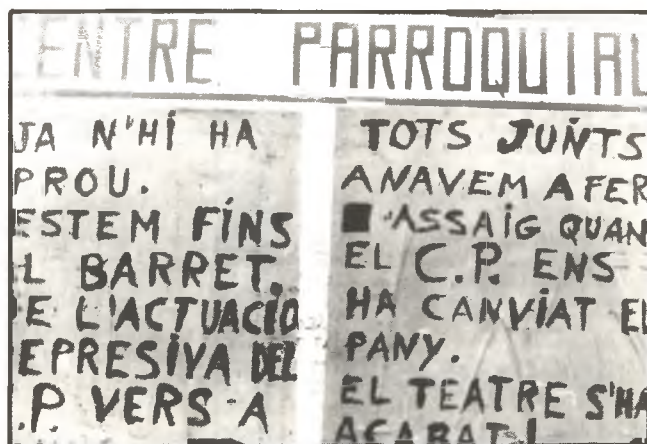 ENTRE PARROQUIAL
JA N'HI HA
PROU.
ESTEM FINS
L BARRET.
E L'ACTUACIÓ
EPRESIVA DEL
.P. VERS A
TOTS JUNTS
ANAVEM A FER
ASSAIG QUAN
EL C.P. ENS
HA CANVIAT EL
PANY.
EL TEATRE S'HA
ACABAT!